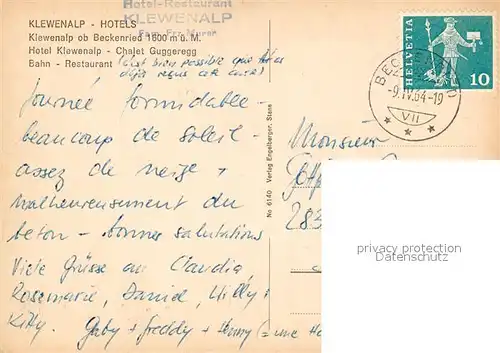 KLEWENALP - HOTELS
Hotel-Restaurant
KLEWENALP
Klewenalp ob Beckenried 1600 m ü. M.
Hotel Klewenalp - Chalet Guggeregg
Bahn - Restaurant (c'est bien possible que
déjà reçus
Journée formidable -
beaucoup de soleil -
assez de neige +
malheureusement du
beton - bonnes salutations
Viele Grüsse an Claudia,
Rosemarie, Daniel, Willy +
Kitty. Gaby + Freddy +
No 6140 Verlag Engelberger, Stans
HELVETIA
10
-9.IV.64-19
VII
Monsieur
283
privacy protection
for our customers